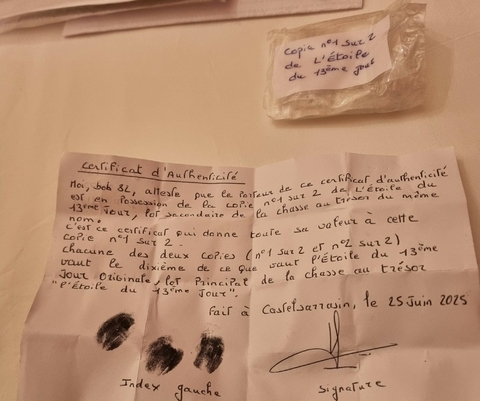 Copie n°1 sur 2
de L'Étoile
du 13ème jour
Certificat d'Authenticité
Moi, Seb SL, atteste que le porteur de ce certificat d'authenticité
est en possession de la copie n°1 sur 2 de L'Étoile du
13ème Jour, lot secondaire de la chasse au trésor du même
nom.
c'est ce certificat qui donne toute sa valeur à cette
copie n°1 sur 2.
chacune des deux copies (n°1 sur 2 et n°2 sur 2)
vaut le dixième de ce que vaut l'Étoile du 13ème
Jour Originale, lot Principal de la chasse au trésor
"L'Étoile du 13ème Jour".
Fait à Castelsarrasin, le 25 Juin 2025
Index gauche
Signature